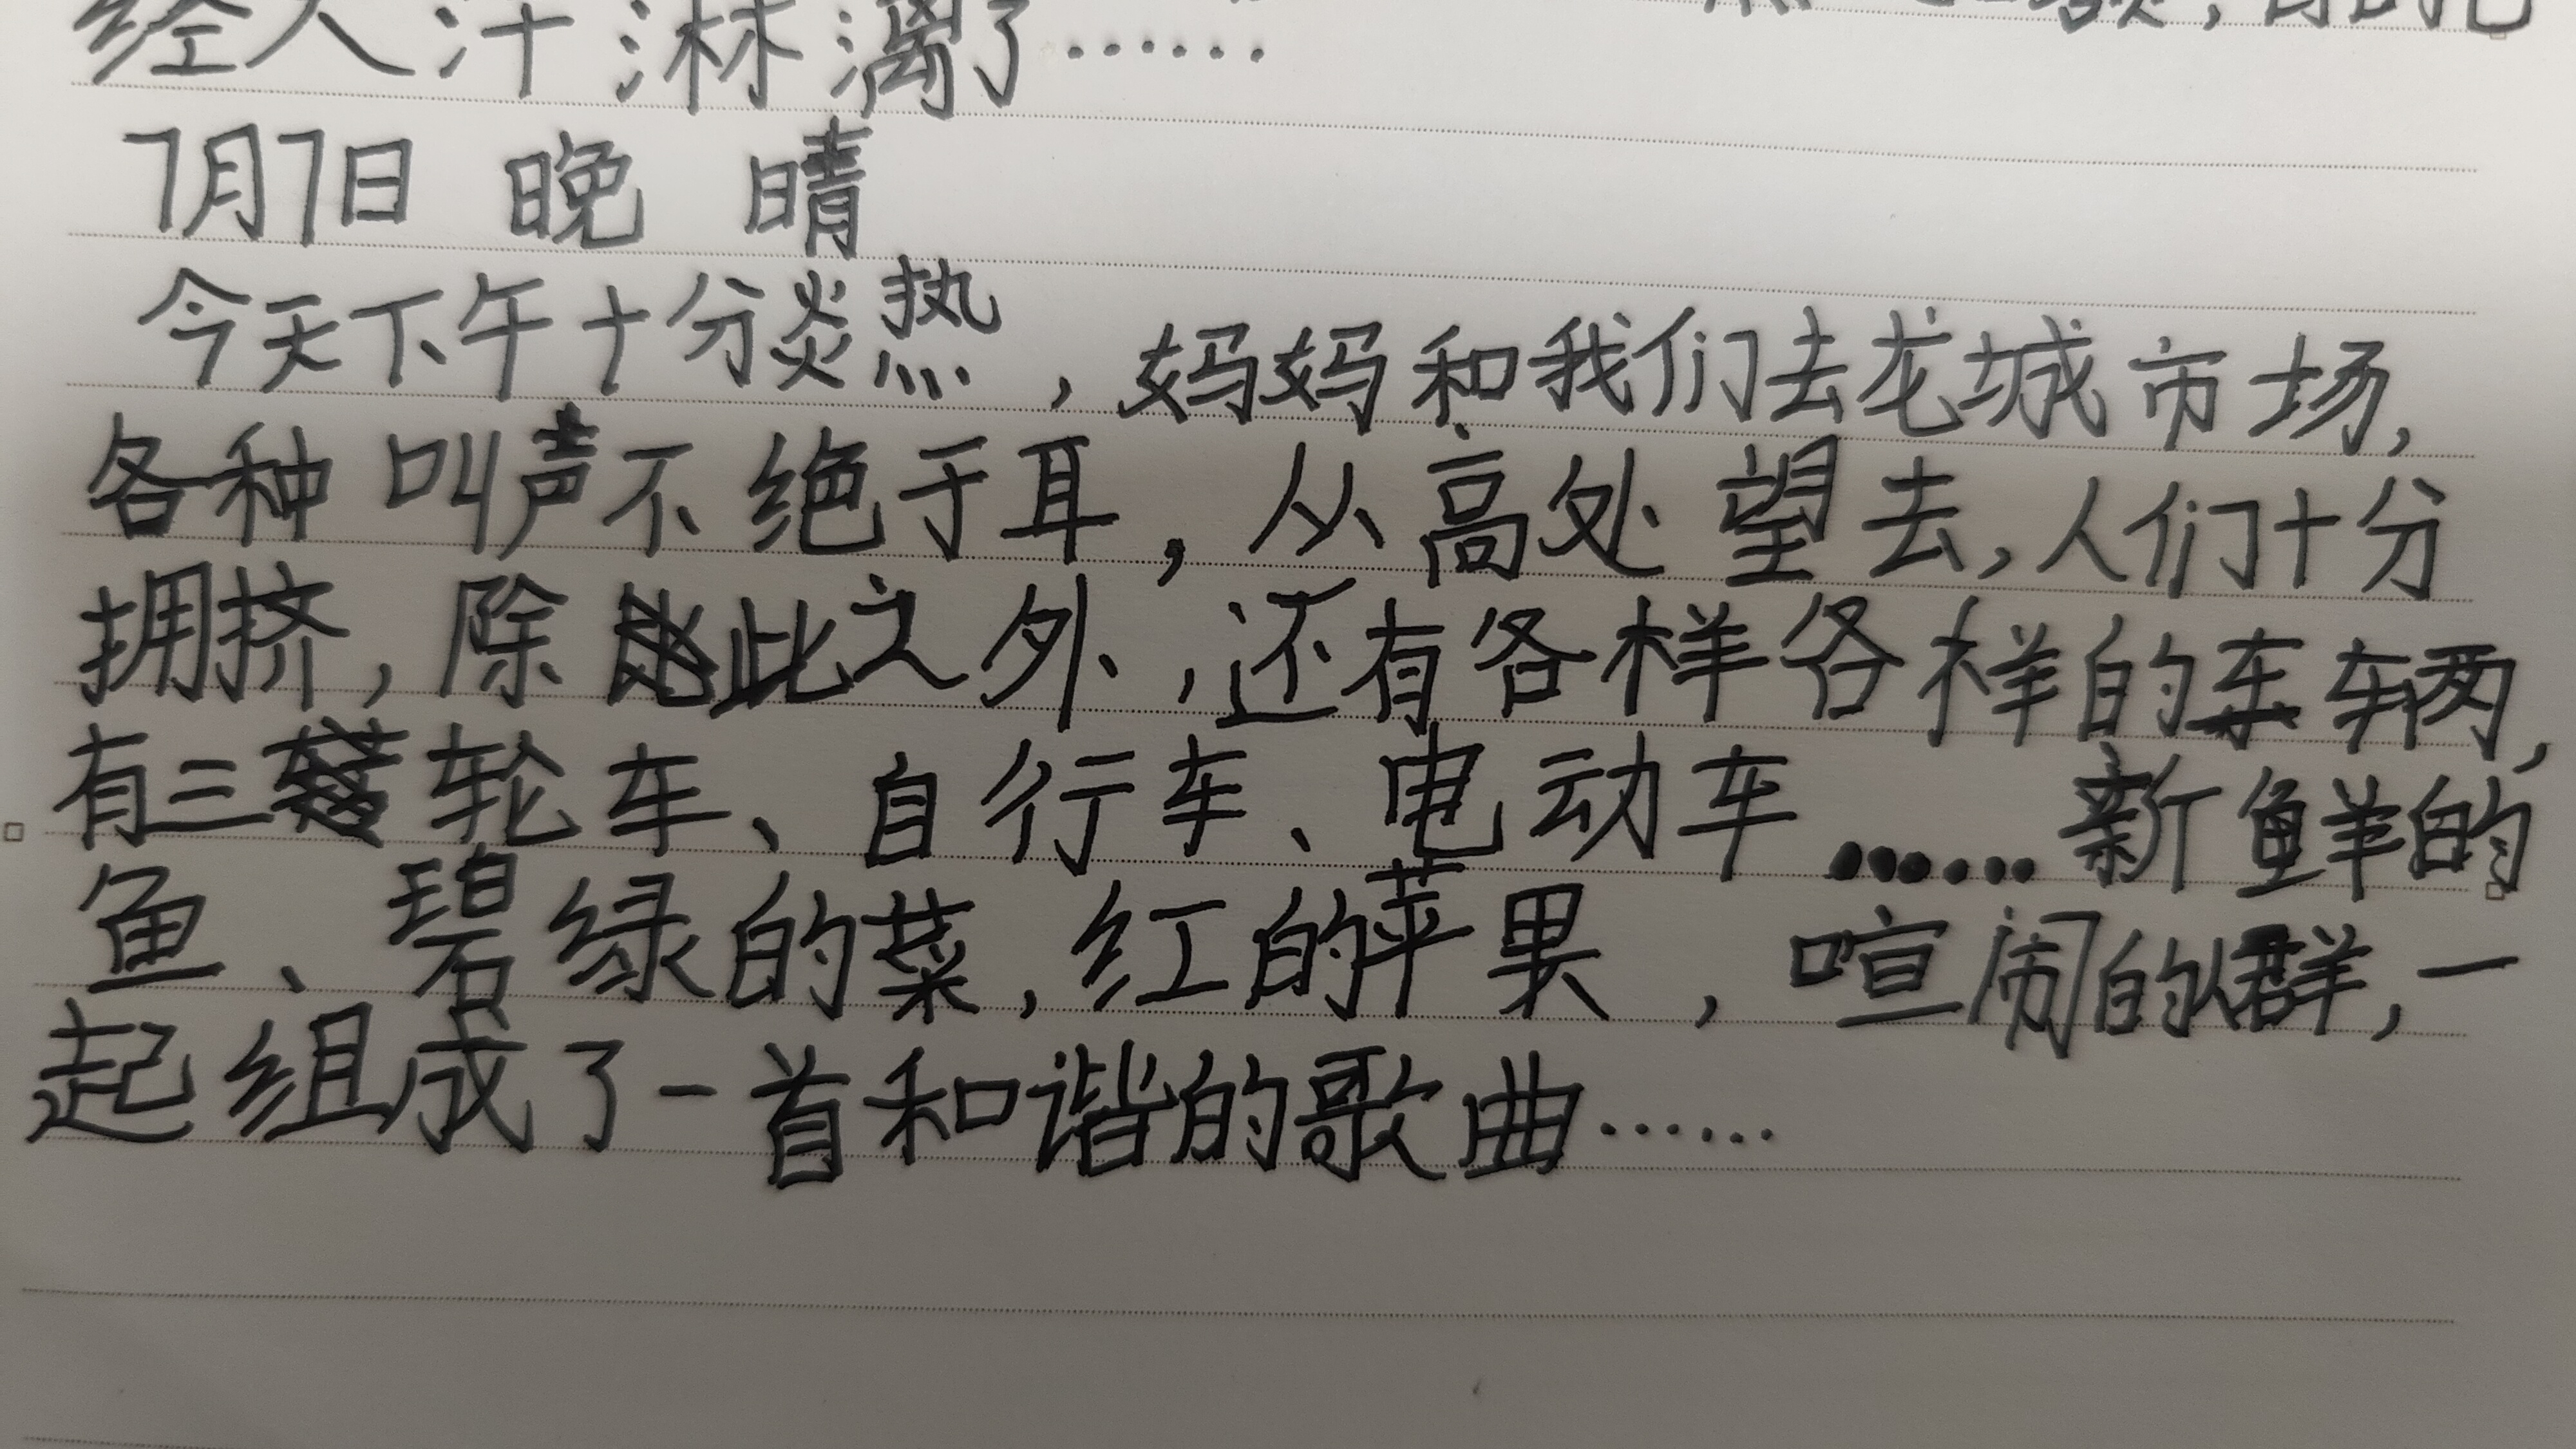 经大汗淋漓了……
7月7日 晚 晴
今天下午十分炎热，妈妈和我们去龙城市场，
各种叫声不绝于耳，从高处望去，人们十分
拥挤，除此之外，还有各样各样的车辆，
有三轮车、自行车、电动车……新鲜的
鱼、碧绿的菜，红的苹果，喧闹的人群，一
起组成了一首和谐的歌曲……